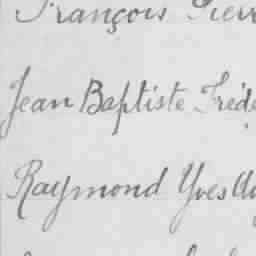 François Pierr
Jean Baptiste Fréd
Raymond Yves